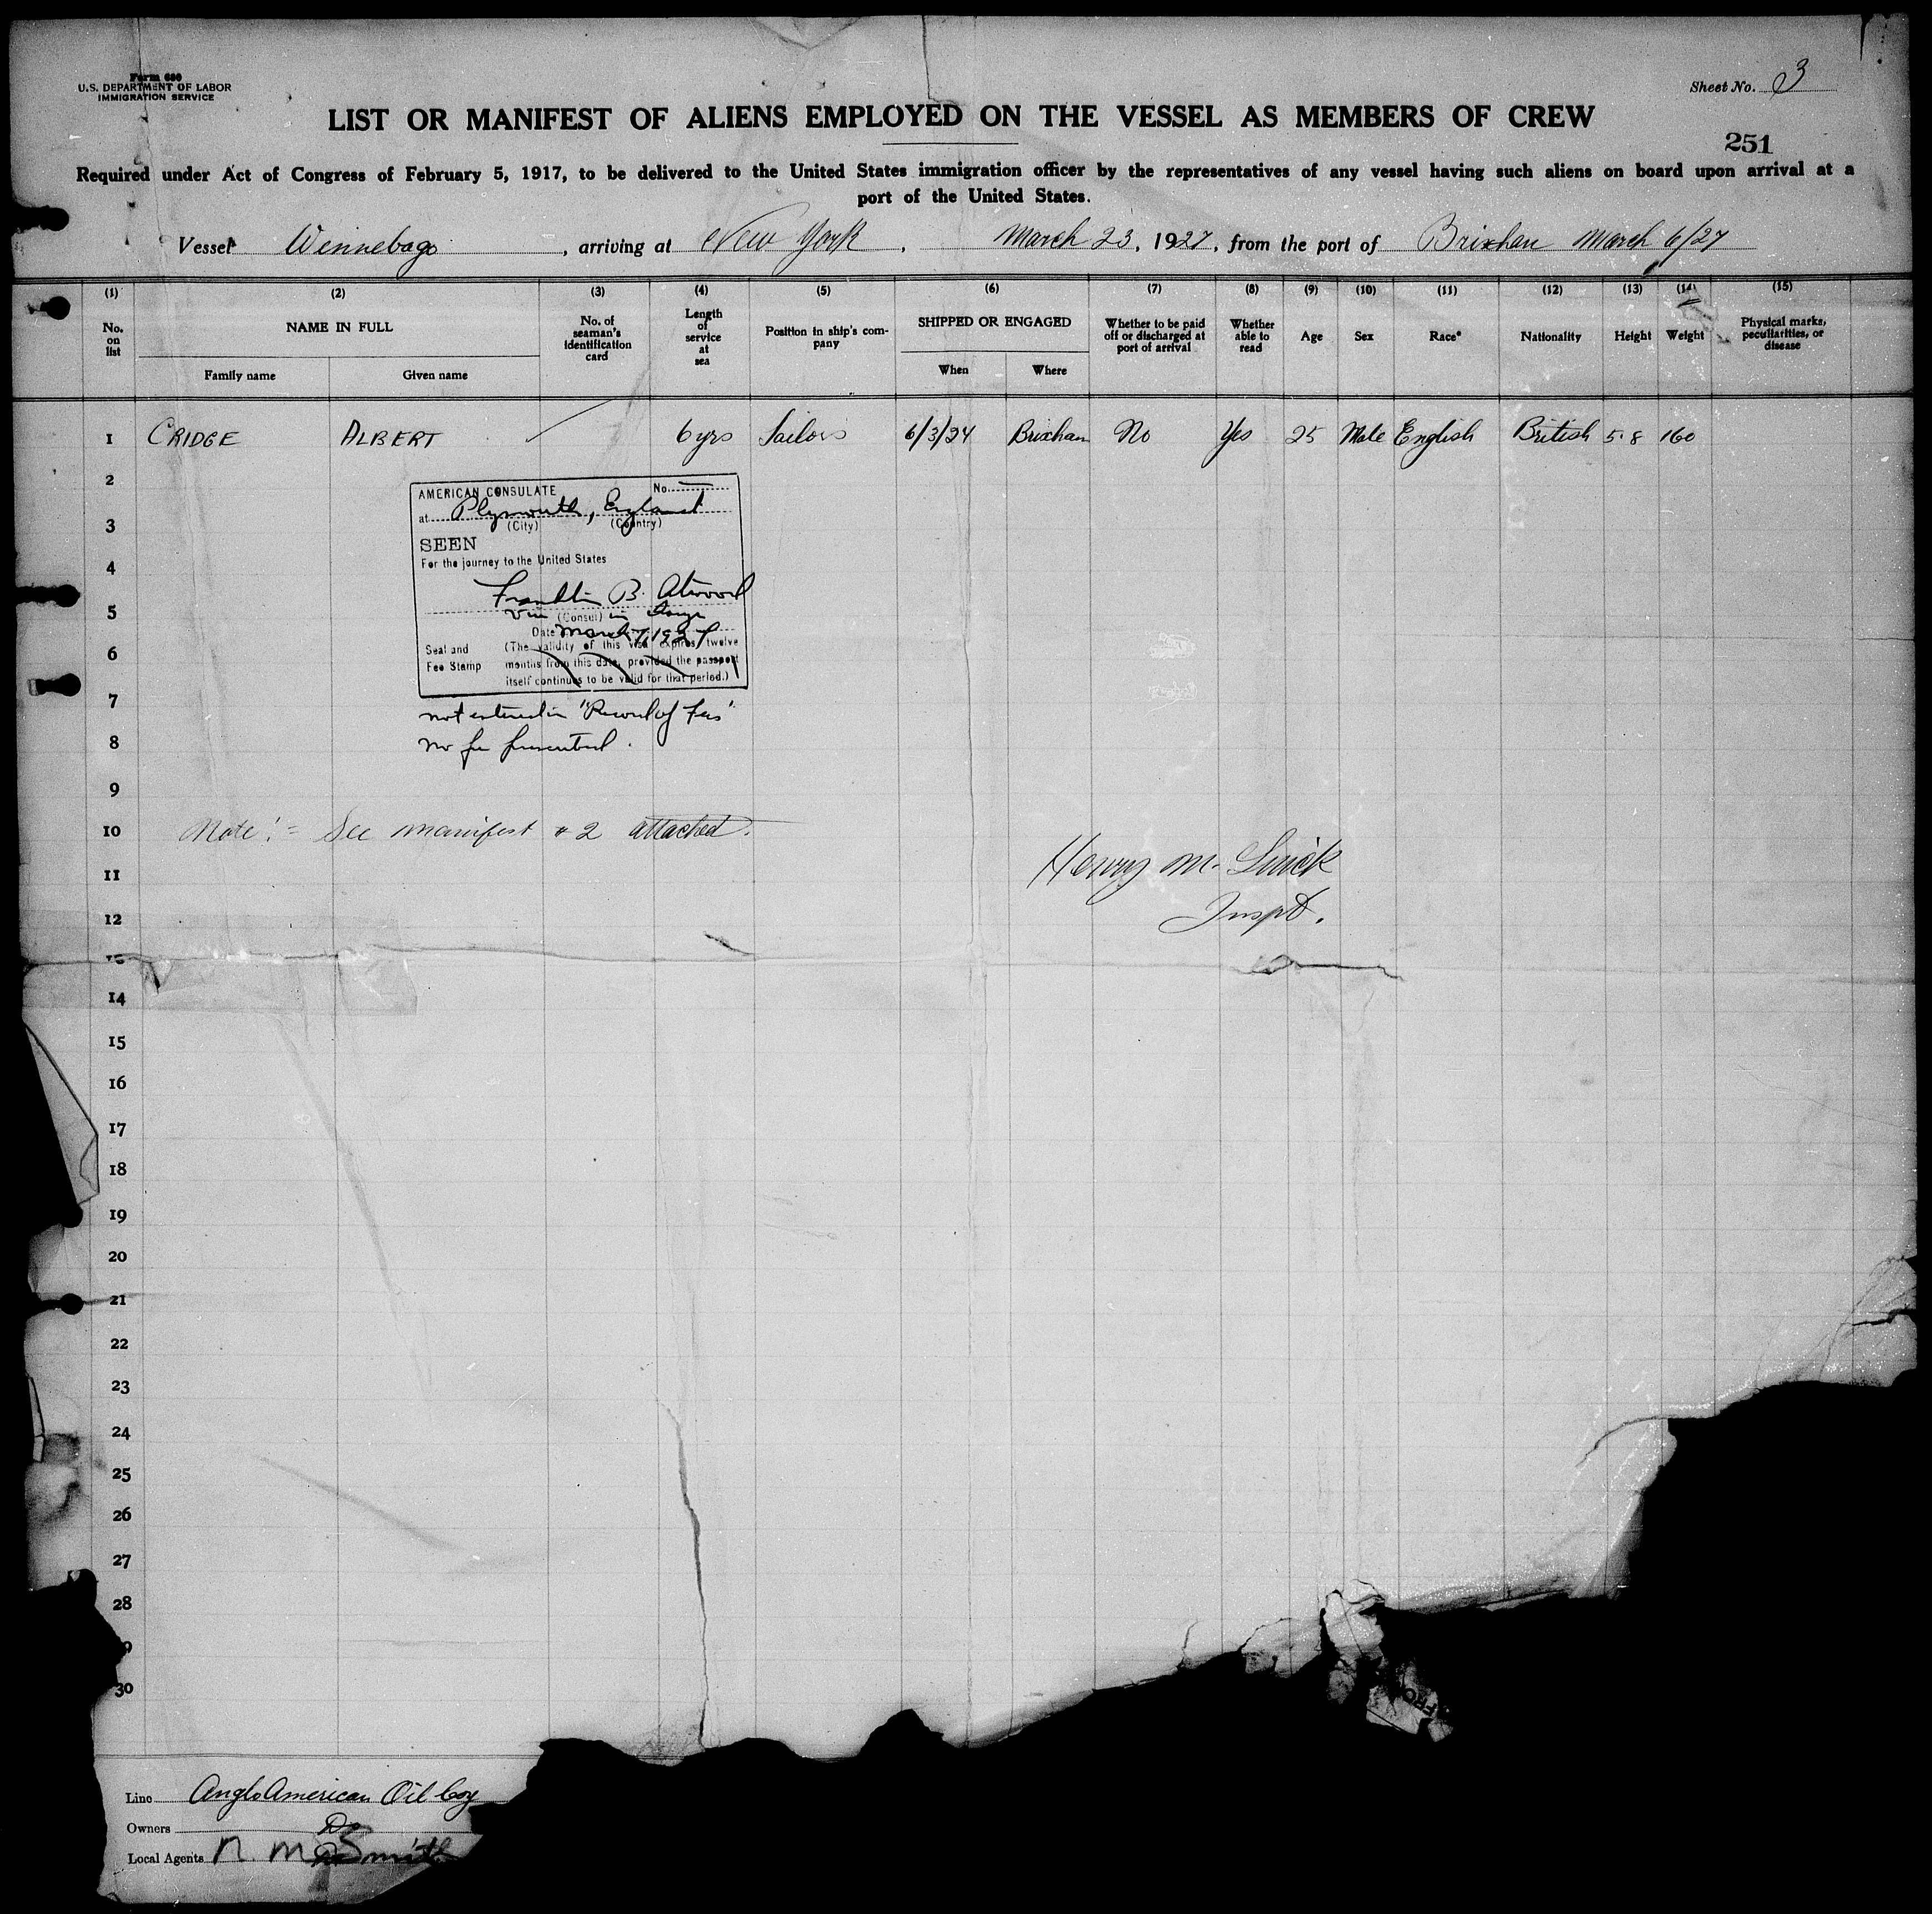 Form 680
U.S. DEPARTMENT OF LABOR
IMMIGRATION SERVICE
Sheet No. 3
LIST OR MANIFEST OF ALIENS EMPLOYED ON THE VESSEL AS MEMBERS OF CREW
251
Required under Act of Congress of February 5, 1917, to be delivered to the United States immigration officer by the representatives of any vessel having such aliens on board upon arrival at a
port of the United States.
Vessel Winnebago, arriving at New York, March 23, 1927, from the port of Brixham March 6/27
(1) (2) (3) (4) (5) (6) (7) (8) (9) (10) (11) (12) (13) (14) (15)
No. on list
NAME IN FULL
Family name
Given name
No. of seaman's identification card
Length of service at sea
Position in ship's company
SHIPPED OR ENGAGED
When
Where
Whether to be paid off or discharged at port of arrival
Whether able to read
Age
Sex
Race*
Nationality
Height
Weight
Physical marks, peculiarities, or disease
1 CRIDGE ALBERT 6 yrs Sailor 6/3/27 Brixham No Yes 25 Male English British 5.8 160
2
AMERICAN CONSULATE No.
at Plymouth, England
(City) (Country)
3
SEEN
For the journey to the United States
4
Franklin B. Atwood
5
Vice (Consul) in charge
Date March 7, 1927
6
Seal and Fee Stamp
(The validity of this visa expires twelve
months from this date, provided the passport
itself continues to be valid for that period.)
7
not entered in "Record of Fees"
8
no fee presented.
9
10 Note:= See manifest #2 attached.
Henry M.
11
Inspt.
12
14
15
16
17
18
19
20
21
22
23
24
25
26
27
28
30
Line Anglo American Oil Coy
Owners Do
Local Agents N. M. Smith